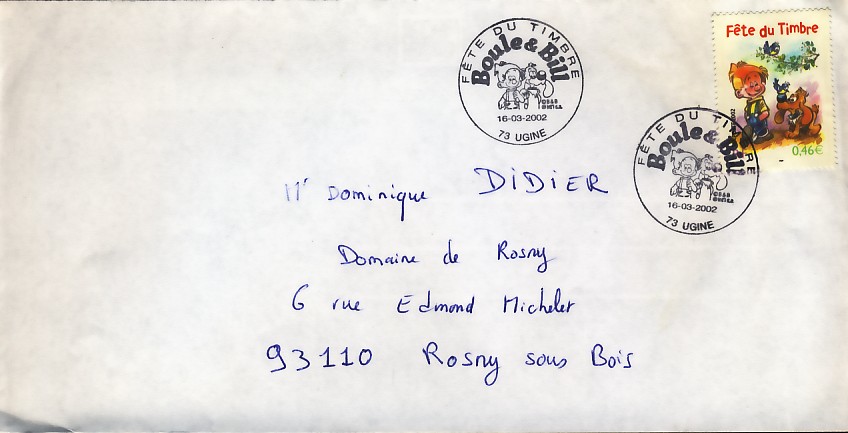 FÊTE DU TIMBRE
Boule & Bill
16-03-2002
73 UGINE
Fête du Timbre
0,46€
FÊTE DU TIMBRE
Boule & Bill
16-03-2002
73 UGINE
Mr Dominique DiDiER
Domaine de Rosny
6 rue Edmond Michelet
93110 Rosny sous Bois